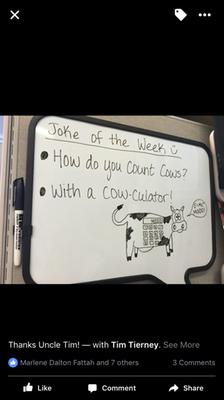 Joke of the Week
How do you Count Cows?
With a COW-culator!
Thanks Uncle Tim! — with Tim Tierney. See More
Marlene Dalton Fattah and 7 others 3 Comments
Like Comment Share